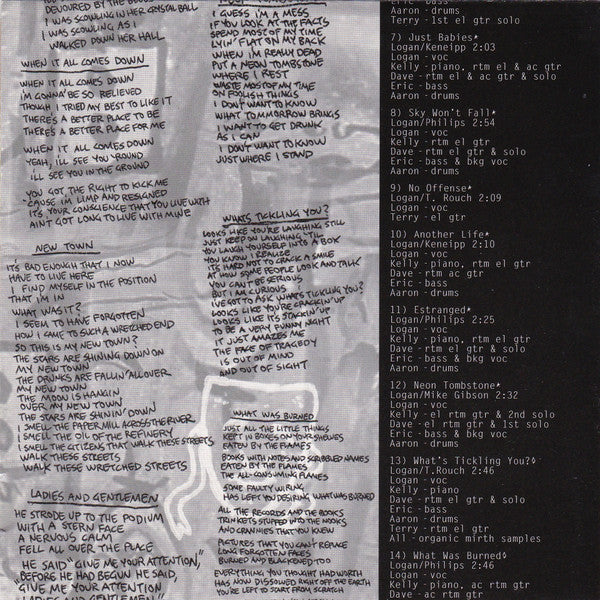 DEVOURED BY THE BLOOD
I WAS SCOWLING IN HER CRYSTAL BALL
I WAS SCOWLING AS I
WALKED DOWN HER HALL
WHEN IT ALL COMES DOWN
WHEN IT ALL COMES DOWN
I'M GONNA' BE SO RELIEVED
THOUGH I TRIED MY BEST TO LIKE IT
THERE'S A BETTER PLACE TO BE
THERE'S A BETTER PLACE FOR ME
WHEN IT ALL COMES DOWN
YEAH, I'LL SEE YOU 'ROUND
I'LL SEE YOU IN THE GROUND
YOU GOT THE RIGHT TO KICK ME
'CAUSE I'M LIMP AND RESIGNED
IT'S YOUR CONSCIENCE THAT YOU LIVE WITH
AIN'T GOT LONG TO LIVE WITH MINE
NEW TOWN
IT'S BAD ENOUGH THAT I NOW
HAVE TO LIVE HERE
I FIND MYSELF IN THE POSITION
THAT I'M IN
WHAT WAS IT?
I SEEM TO HAVE FORGOTTEN
HOW I CAME TO SUCH A WRETCHED END
SO THIS IS MY NEW TOWN?
THE STARS ARE SHINING DOWN ON
MY NEW TOWN
THE DRUNKS ARE FALLIN' ALL OVER
MY NEW TOWN
THE MOON IS HANGIN
OVER MY NEW TOWN
THE STARS ARE SHININ' DOWN
I SMELL THE PAPER MILL ACROSS THE RIVER
I SMELL THE OIL OF THE REFINERY
I SMELL THE CITIZENS THAT WALK THESE STREETS
WALK THESE STREETS
WALK THESE WRETCHED STREETS
LADIES AND GENTLEMEN
HE STRODE UP TO THE PODIUM
WITH A STERN FACE
A NERVOUS CALM
FELL ALL OVER THE PLACE
HE SAID "GIVE ME YOUR ATTENTION,"
BEFORE HE HAD BEGUN HE SAID,
"GIVE ME YOUR ATTENTION
LADIES AND GENTLEMEN."
I GUESS I'M A MESS
IF YOU LOOK AT THE FACTS
SPEND MOST OF MY TIME
LYIN' FLAT ON MY BACK
WHEN I'M REALLY DEAD
PUT A NEON TOMBSTONE
WHERE I REST
WASTE MOST OF MY TIME
ON FOOLISH THINGS
I DON'T WANT TO KNOW
WHAT TOMMORROW BRINGS
I WANT TO GET DRUNK
AS I CAN
I DON'T WANT TO KNOW
JUST WHERE I STAND
WHAT'S TICKLING YOU?
LOOKS LIKE YOU'RE LAUGHING STILL
JUST KEEP ON LAUGHING 'TIL
YOU LAUGH YOURSELF INTO A BOX
YOU KNOW I REALIZE
IT'S HARD NOT TO CRACK A SMILE
AT HOW SOME PEOPLE LOOK AND TALK
YOU CAN'T BE SERIOUS
BUT I AM CURIOUS
I'VE GOT TO ASK WHAT'S TICKLING YOU?
LOOKS LIKE YOU'RE CRACKIN' UP
LOOKS LIKE IT'S STACKIN' UP
TO BE A VERY FUNNY NIGHT
IT JUST AMAZES ME
THE FACE OF TRAGEDY
IS OUT OF MIND
AND OUT OF SIGHT
WHAT WAS BURNED
JUST ALL THE LITTLE THINGS
KEPT IN BOXES ON YOUR SHELVES
EATEN BY THE FLAMES
BOOKS WITH NOTES AND SCRIBBLED NAMES
EATEN BY THE FLAMES
THE ALL-CONSUMING FLAMES
SOME FAULTY WIRING
HAS LEFT YOU DESIRING WHAT WAS BURNED
ALL THE RECORDS AND THE BOOKS
TRINKETS STUFFED INTO THE NOOKS
AND CRANNIES THAT YOU KNEW
PICTURES THAT YOU CAN'T REPLACE
LONG FORGOTTEN FACES
BURNED AND BLACKENED TOO
EVERYTHING YOU THOUGHT HAD WORTH
HAS NOW DISSOLVED RIGHT OFF THE EARTH
YOU'RE LEFT TO START FROM SCRATCH
Eric - bass
Aaron - drums
Terry - 1st el gtr solo
7) Just Babies*
Logan/Keneipp 2:03
Logan - voc
Kelly - piano, rtm el & ac gtr
Dave - rtm el & ac gtr & solo
Eric - bass
Aaron - drums
8) Sky Won't Fall*
Logan/Philips 2:54
Logan - voc
Kelly - rtm el gtr
Dave - rtm el gtr & solo
Eric - bass & bkg voc
Aaron - drums
9) No Offense*
Logan/T. Rouch 2:09
Logan - voc
Terry - el gtr
10) Another Life*
Logan/Keneipp 2:10
Logan - voc
Kelly - piano, rtm el gtr
Dave - rtm ac gtr
Eric - bass
Aaron - drums
11) Estranged*
Logan/Philips 2:25
Logan - voc
Kelly - piano, rtm el gtr
Dave - rtm el gtr & solo
Eric - bass & bkg voc
Aaron - drums
12) Neon Tombstone*
Logan/Mike Gibson 2:32
Logan - voc
Kelly - el rtm gtr & 2nd solo
Dave - el rtm gtr & 1st solo
Eric - bass & bkg voc
Aaron - drums
13) What's Tickling You?◊
Logan/T.Rouch 2:46
Logan - voc
Kelly - piano
Dave - rtm el gtr & solo
Eric - bass
Aaron - drums
Terry - rtm el gtr
All - organic mirth samples
14) What Was Burned◊
Logan/Philips 2:46
Logan - voc
Kelly - piano, ac rtm gtr
Dave - rtm el gtr